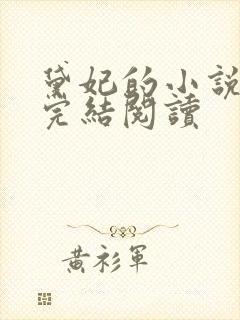 黛妃的小說
完結閱讀
黃衫軍